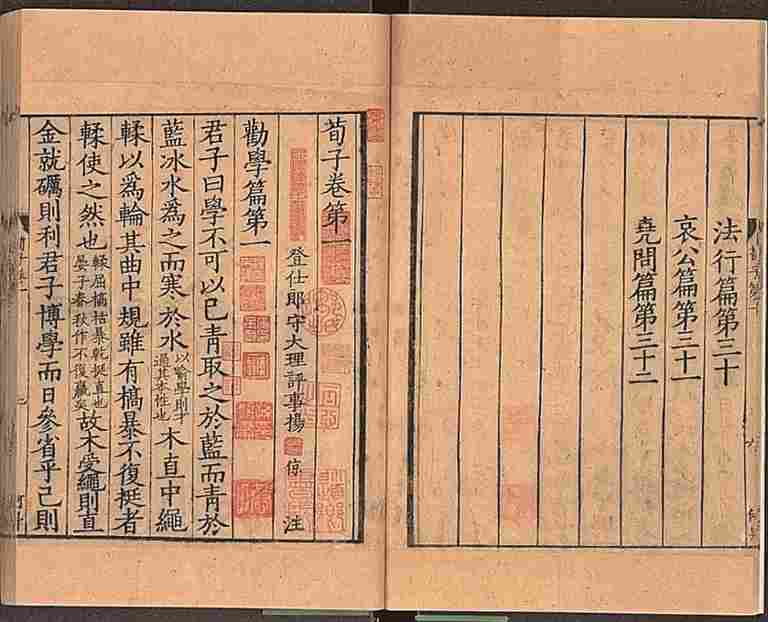 法行篇第三十
哀公篇第三十一
堯問篇第三十二
荀子卷第一
登仕郎守大理評事楊倞注
勸學篇第一
君子曰學不可以已青取之於藍而青於
藍冰水爲之而寒於水以喻學則才過其本性也木直中繩
輮以爲輪其曲中規雖有槁暴不復挺者
輮使之然也輮屈槁枯暴乾挺直也晏子春秋作不復贏矣故木受繩則直
金就礪則利君子博學而日參省乎己則